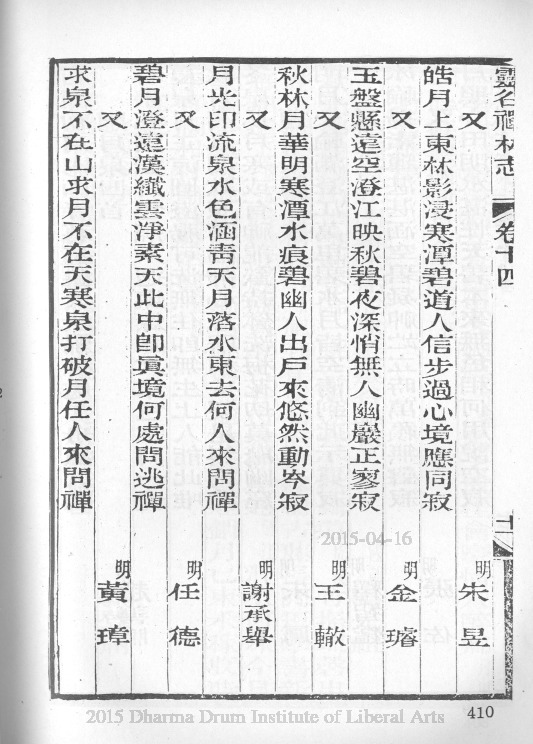 靈谷禪林志
卷十四
十一
又 明 朱昱
皓月上東林影浸寒潭碧道人信步過心境應同寂
又 明 金璿
玉盤懸遠空澄江映秋碧夜深悄無人幽巖正寥寂
又 明 王轍
秋林月華明寒潭水痕碧幽人出戶來悠然動岑寂
又 明 謝承舉
月光印流泉水色涵靑天月落水東去何人來問禪
又 明 任德
碧月澄遠漢纖雲淨素天此中卽眞境何處問逃禪
又 明 黃瑋
求泉不在山求月不在天寒泉打破月任人來問禪
2015-04-16
410
2015 Dharma Drum Institute of Liberal Arts